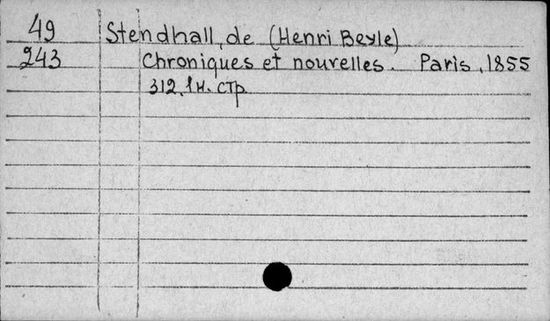 49 Stendhall, de (Henri Beyle)
243 Chroniques et nouvelles. Paris, 1855
312, 1н. стр.